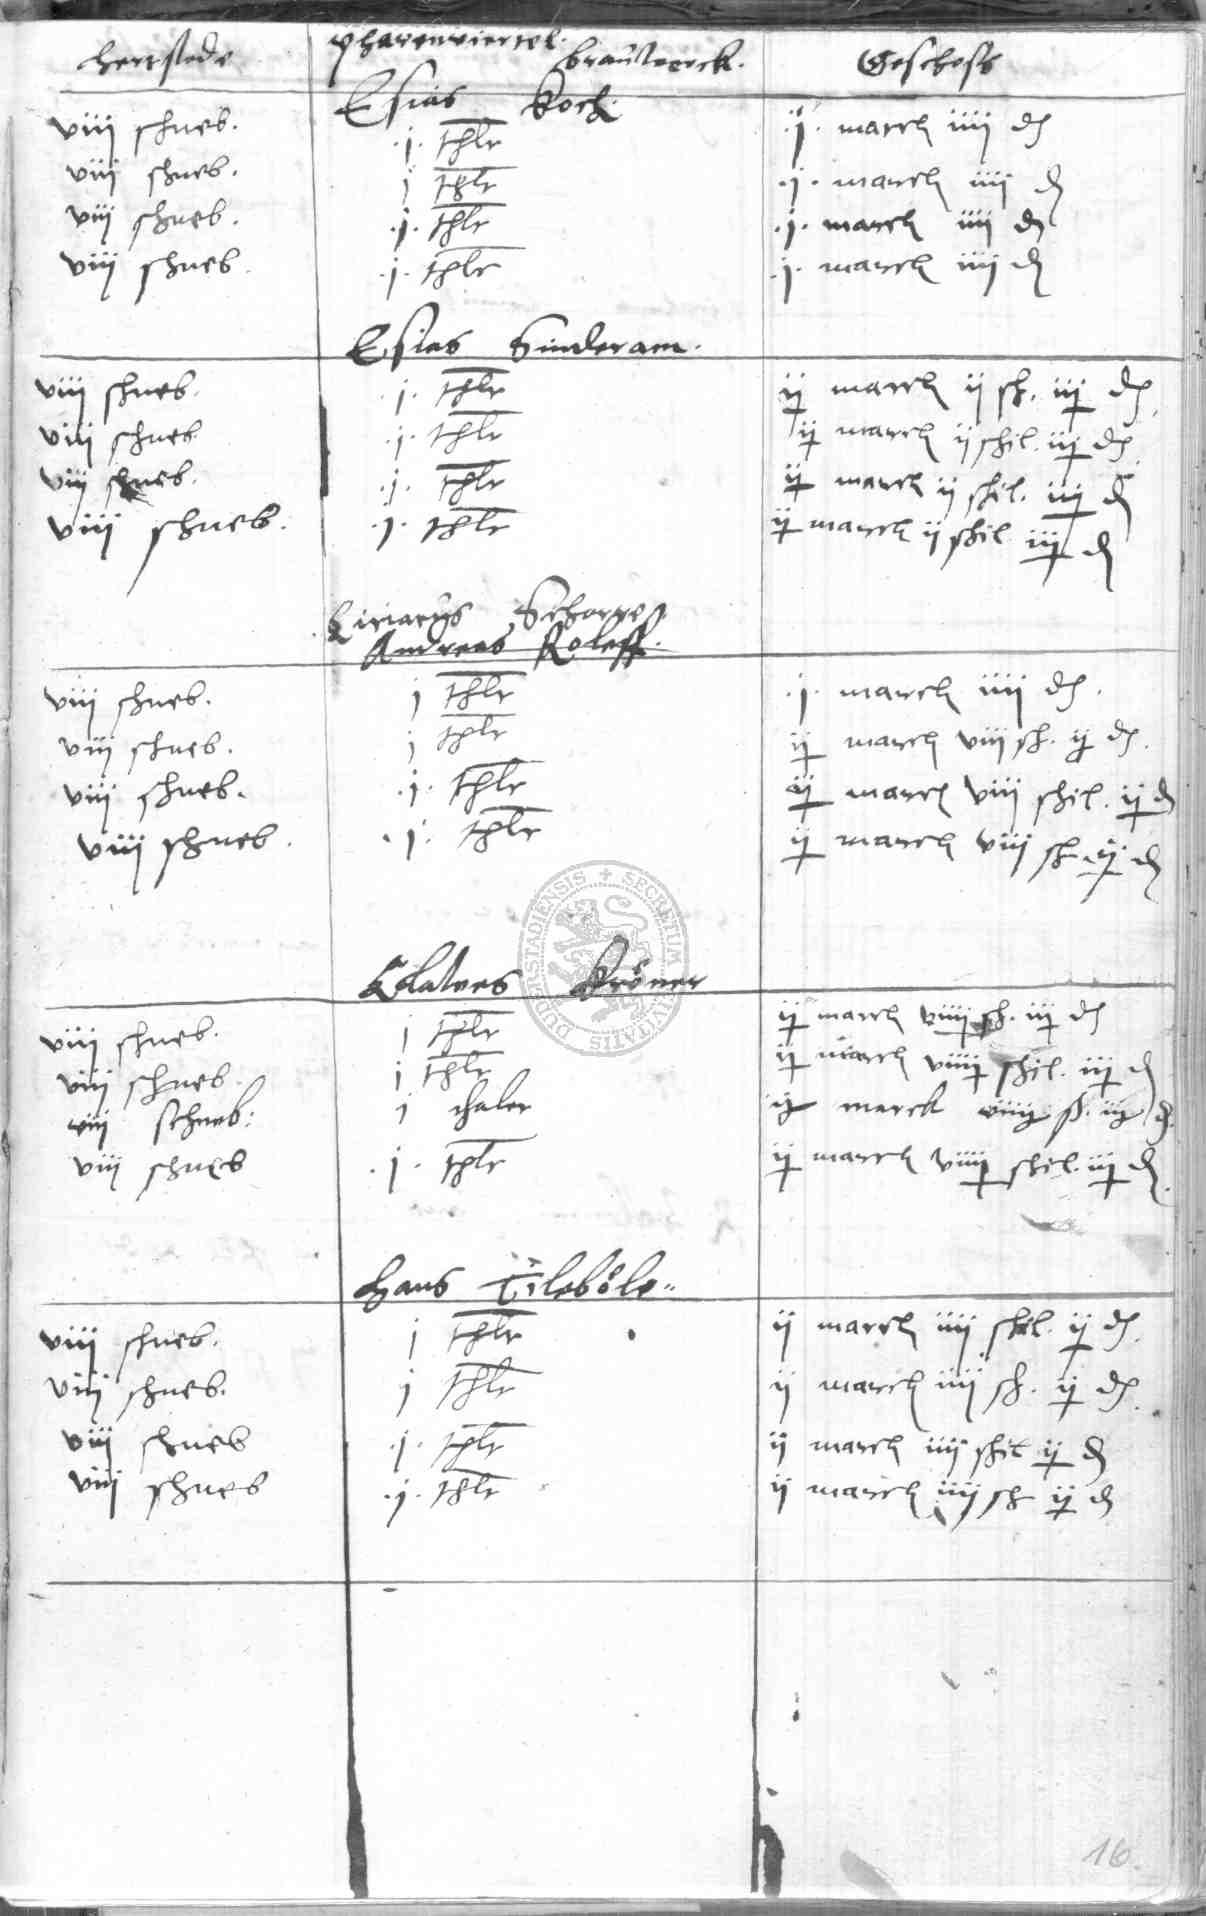 hertstede pharenviertel. brauwerck. Geschoss
Esias Koch.
viii schneb. .j. thlr .j. marck iiii d
viii schneb. j thlr .j. marck iiii d
viii schneb. .j. thlr .j. marck iiii d
viii schneb. .j. thlr .j. marck iiii d
Esias Sinderam.
viii schneb. .j. thlr ij marck ij sch. iij d
viii schneb. .j. thlr ij marck ij schil. iij d
viii schneb. .j. thlr ij marck ij schil. iij d
viii schneb. .j. thlr ij marck ij schil iij d
Ciriacus Schorpe
Andreas Roleff.
viii schneb. j thlr .j. marck iiii d.
viii schneb. j thlr ij marck viii sch. ij d.
viii schneb. .j. thlr ij marck viii schil. ij d
viii schneb. .j. thlr ij marck viii sch ij d
Clawes Kröner
viii schneb. j thlr ij marck viiii sch. iij d
viii schneb. j thlr ij marck viiii schil. iij d
viii schneb: j thaler ij marck viiij ß. iij d.
viii schneb .j. thlr ij marck viiii schil. iij d.
Hans Tileböle
viii schneb. j thlr ij marck iiii schil. ij d.
viii schneb. j thlr ij marck iiii sch. ij d.
viii schneb .j. thlr ij marck iiii schil ij d
viii schneb .j. thlr ij marck iiii sch ij d
SECRETUM CIVITATIS DUDERSTADIENSIS
16.